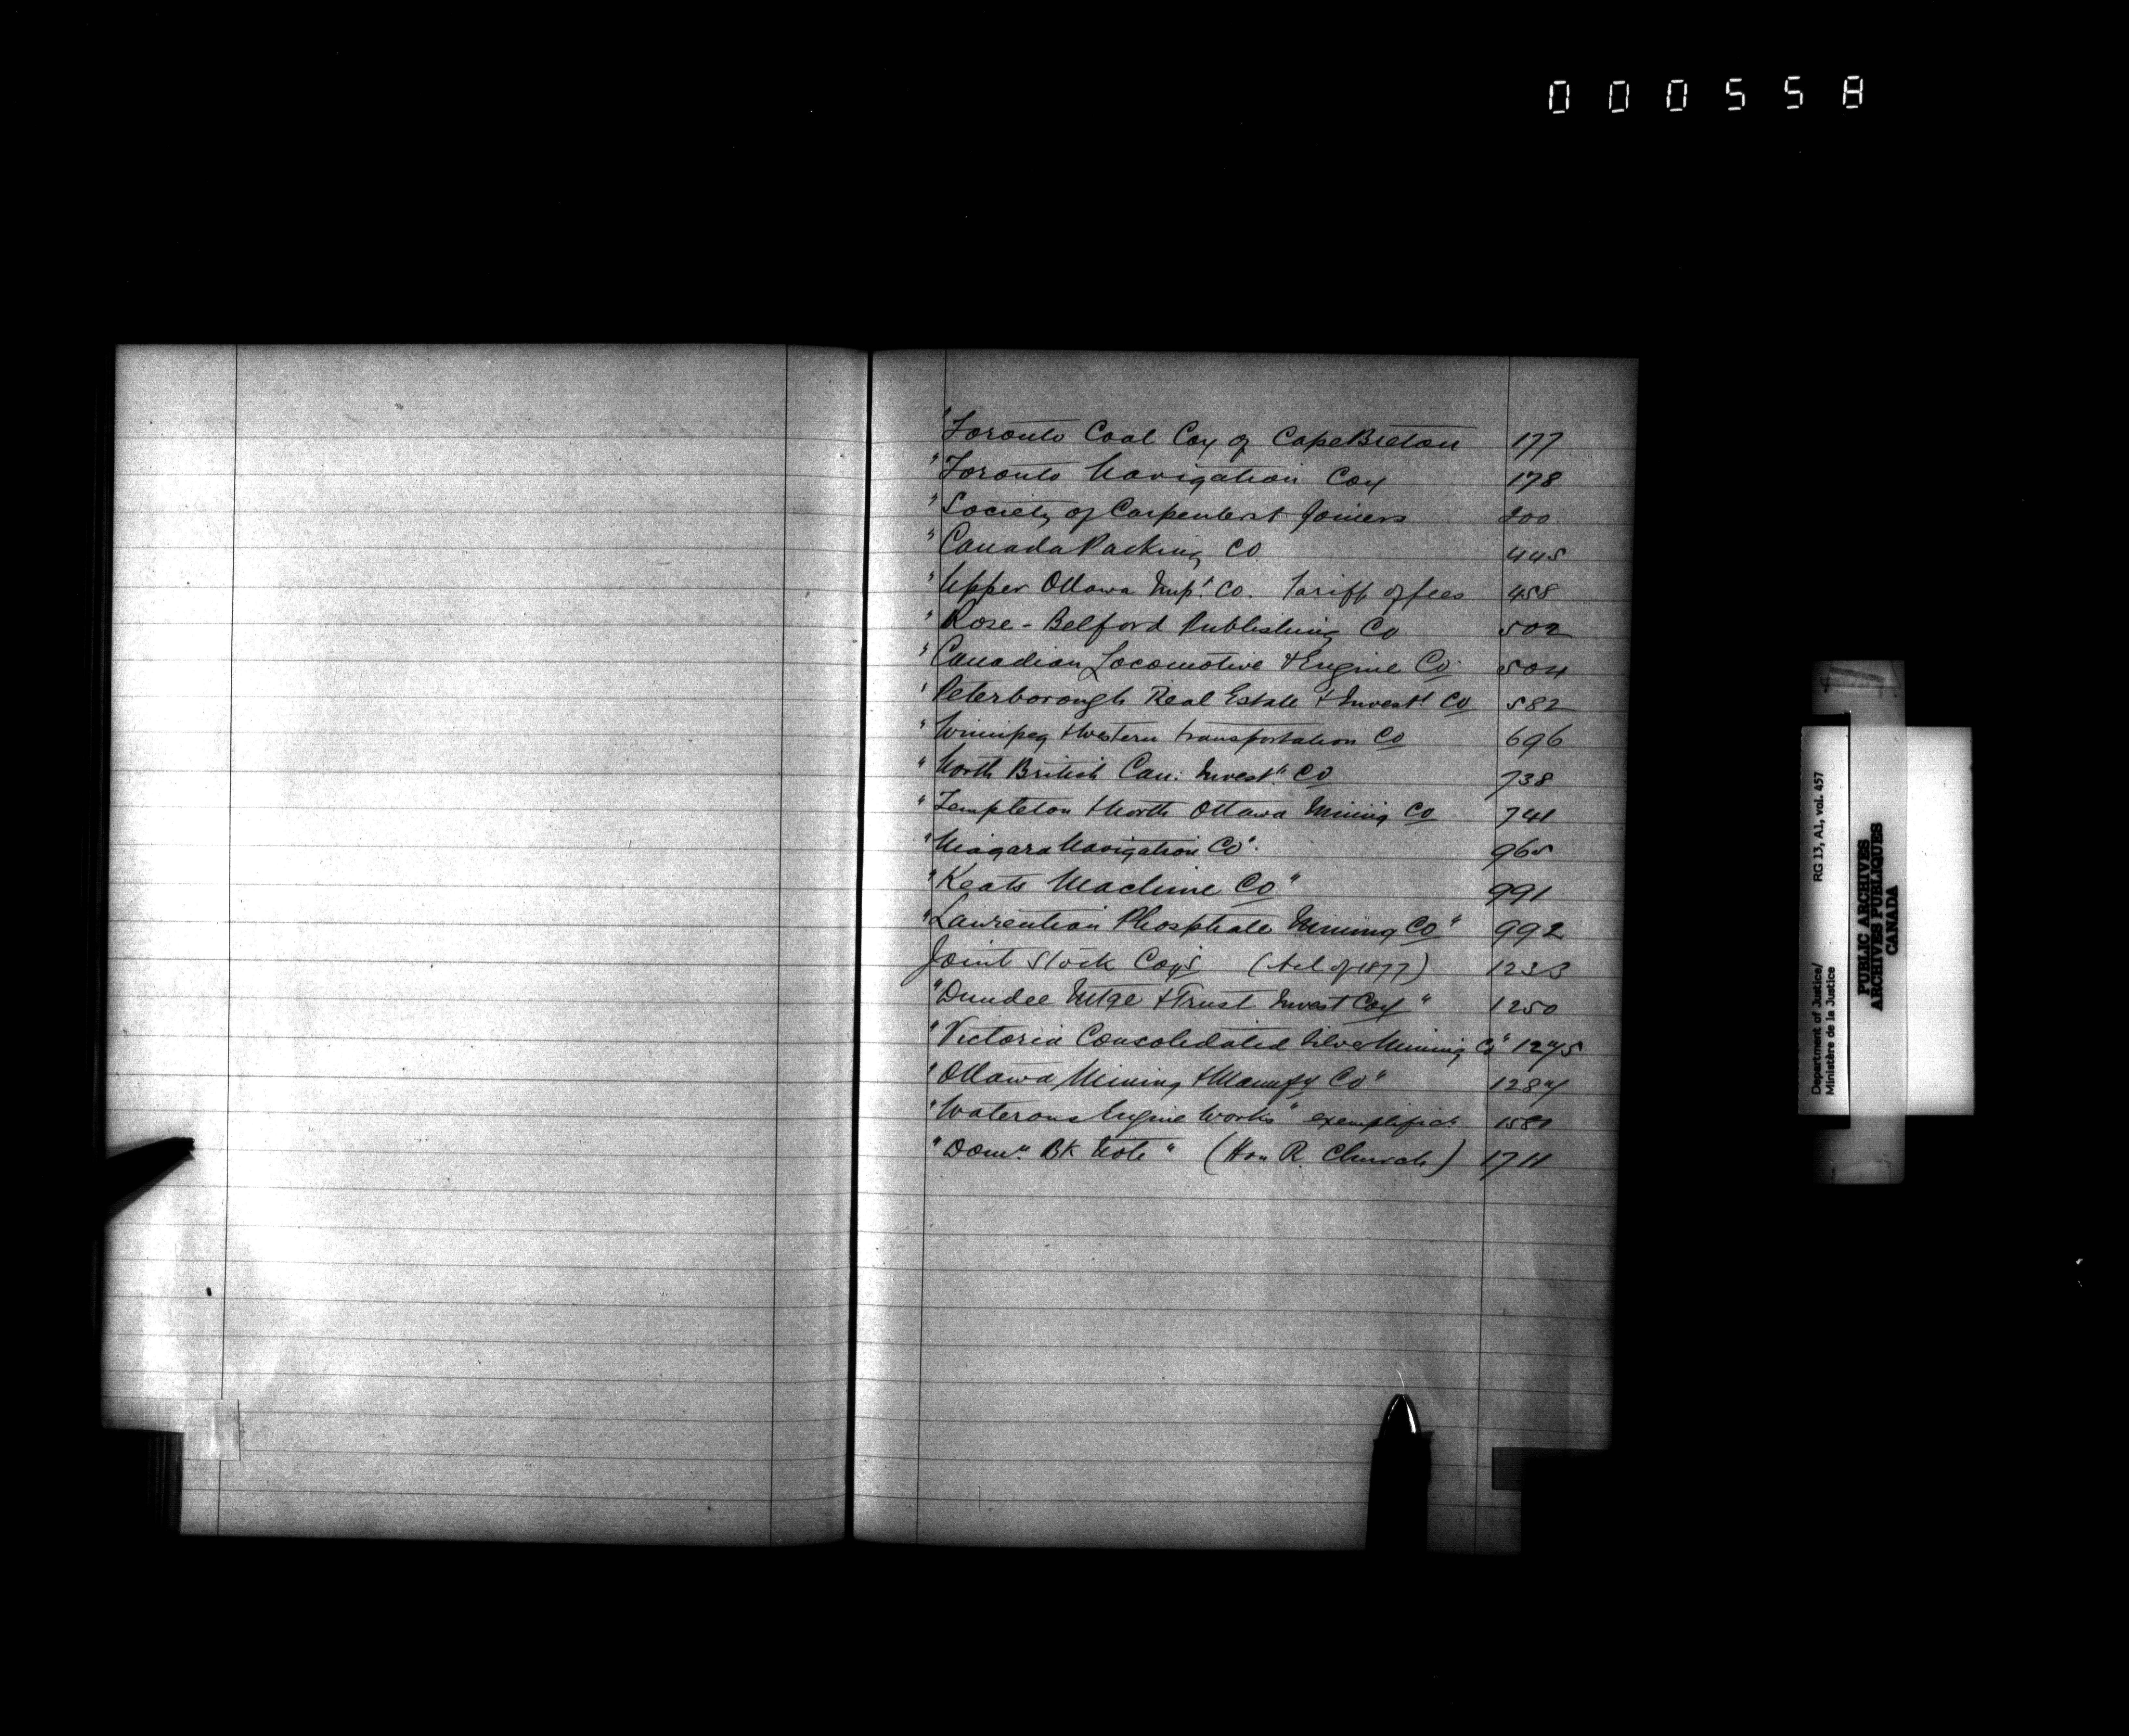 000558
"Toronto Coal Coy of Cape Breton 177
"Toronto Navigation Coy 178
"Society of Carpenters & Joiners 200
"Canada Packing Co 445
"Upper Ottawa Impt. Co. Tariff of fees 458
"Rose-Belford Publishing Co 502
"Canadian Locomotive & Engine Co. 504
"Peterborough Real Estate & Invest't Co 582
"Winnipeg & Western Transportation Co 696
"North British Can. Invest't Co 738
"Templeton & North Ottawa Mining Co 741
"Niagara Navigation Co". 965
"Keats Machine Co" 991
"Laurentian Phosphate Mining Co" 992
Joint Stock Coys (Act of 1877) 1233
"Dundee Mtge & Trust Invest Coy" 1250
"Victoria Consolidated Silver Mining Co" 1275
"Ottawa Mining & Manufg Co" 1284
"Waterous Engine Works" exemplificn
"Domn. Bk Note" (Hon R. Church) 1711
Department of Justice/ RG 13, A1, vol. 457
Ministère de la Justice
PUBLIC ARCHIVES
ARCHIVES PUBLIQUES
CANADA